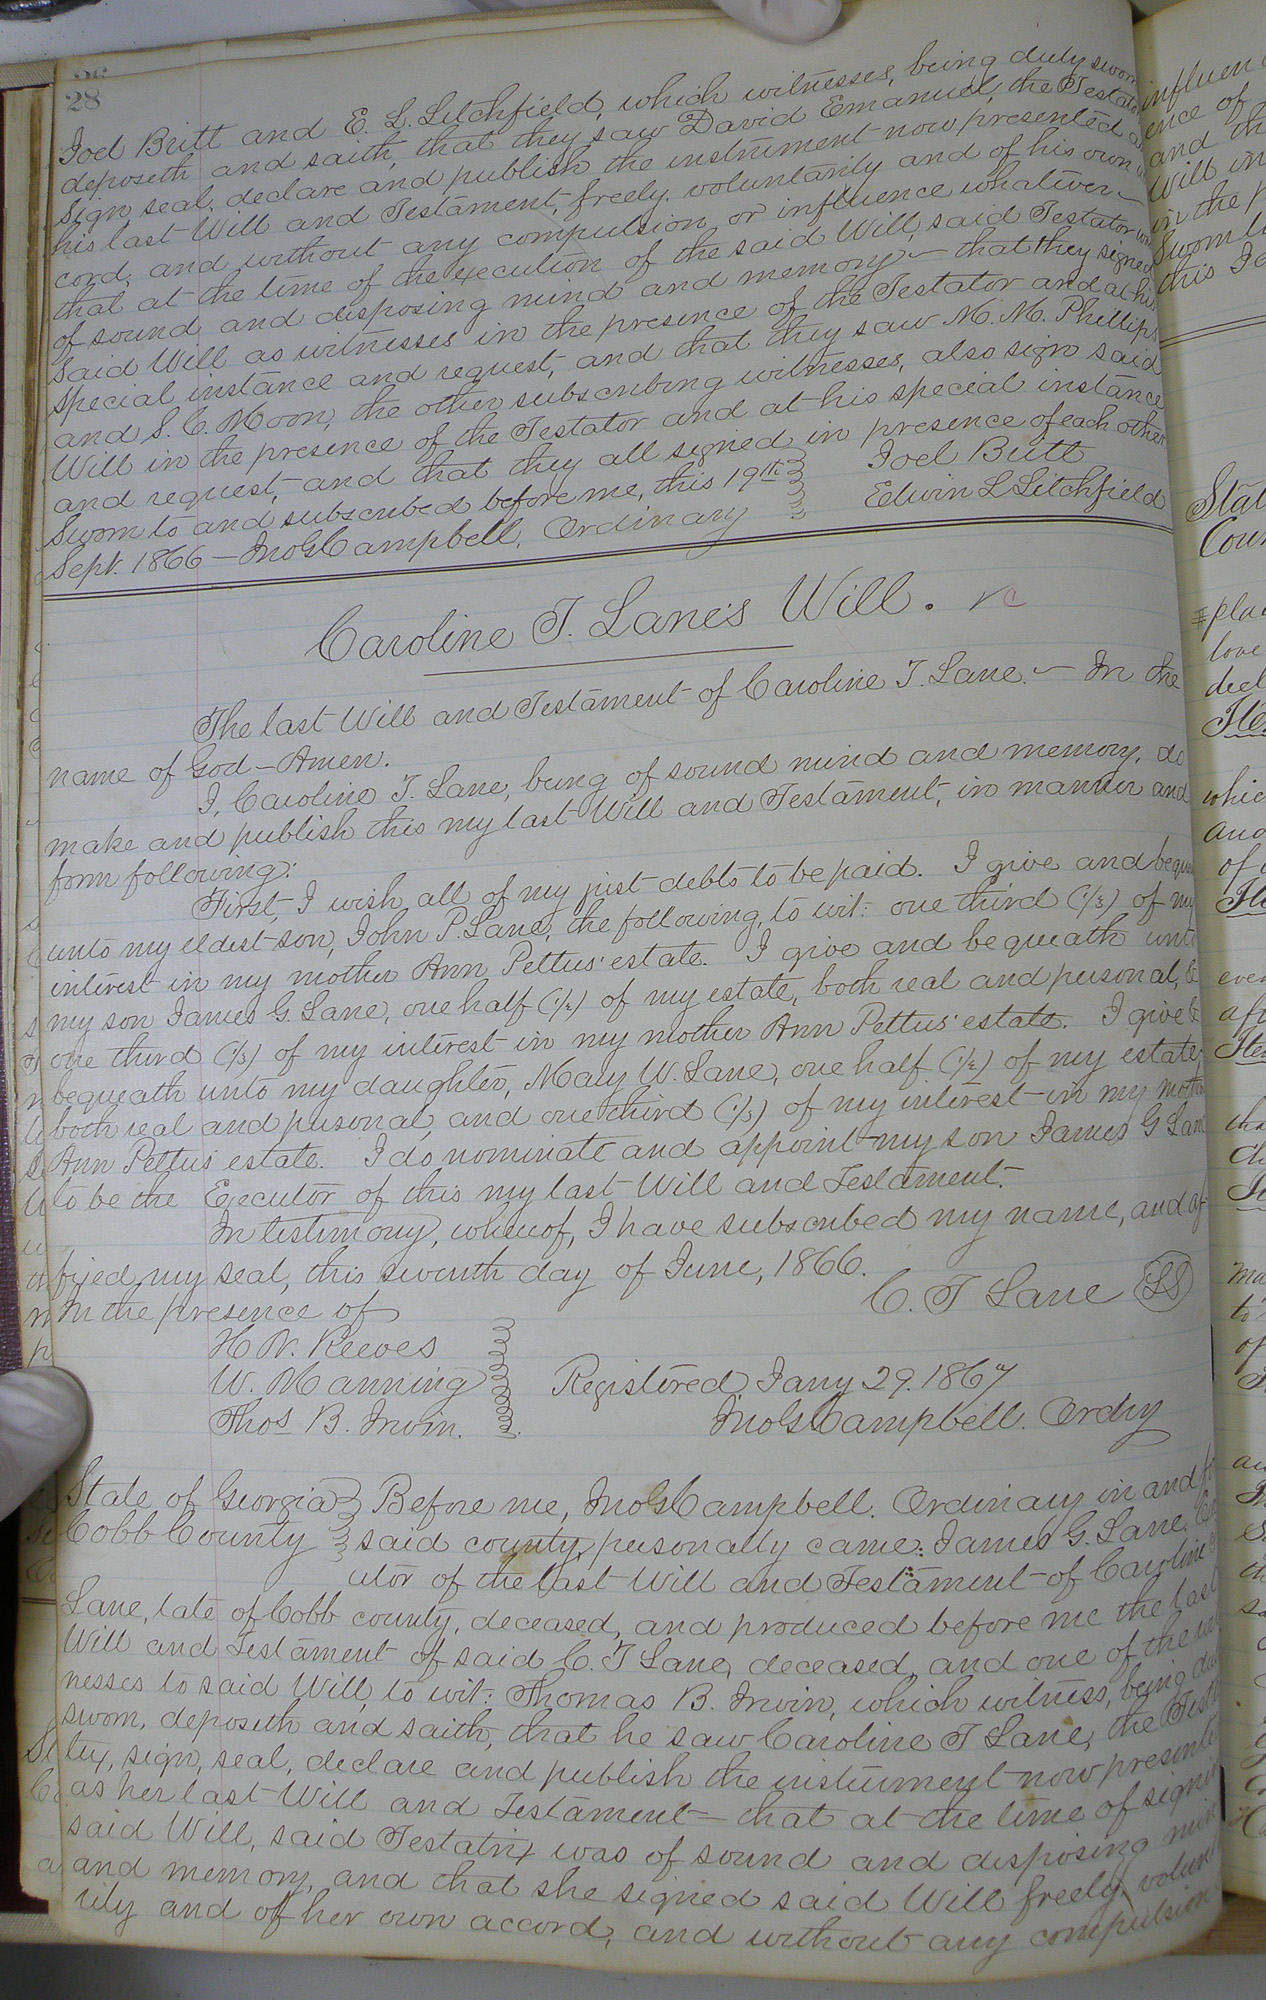 28
Joel Britt and E. L. Litchfield, which witnesses, being duly sworn
deposeth and saith, that they saw David Emanuel, the Testator
sign seal, declare and publish the instrument now presented as
his last Will and Testament, freely, voluntarily and of his own ac
cord, and without any compulsion or influence whatever —
that at the time of the execution of the said Will, said Testator was
of sound and disposing mind and memory — that they signed
said Will as witnesses in the presence of the Testator and at his
special instance and request, and that they saw M. M. Phillips
and S. C. Moon, the other subscribing witnesses, also sign said
Will in the presence of the Testator and at his special instance
and request, and that they all signed in presence of each other
Sworn to and subscribed before me, this 19th Joel Britt
Sept. 1866 — Jno G Campbell, Ordinary Edwin L Litchfield
Caroline T. Lane's Will.
The last Will and Testament of Caroline T. Lane. — In the
name of God — Amen.
I, Caroline T. Lane, being of sound mind and memory, do
make and publish this my last Will and Testament, in manner and
form following:
First, I wish all of my just debts to be paid. I give and beque
unto my eldest son, John P. Lane, the following, to wit: one third (1/3) of my
interest in my mother Ann Pettus' estate. I give and bequeath unto
my son James G. Lane, one half (1/2) of my estate, both real and personal, &
one third (1/3) of my interest in my mother Ann Pettus' estate. I give &
bequeath unto my daughter, Mary W. Lane, one half (1/2) of my estate
both real and personal, and one third (1/3) of my interest in my mother
Ann Pettus' estate. I do nominate and appoint my son James G Lane
to be the Executor of this my last Will and Testament.
In testimony, whereof, I have subscribed my name, and af-
fixed my seal, this seventh day of June, 1866.
In the presence of C. T Lane (LS)
H. N. Reeves
W. Manning Registered Jany 29. 1867
Thos B. Irwin. Jno G Campbell. Ordry
State of Georgia Before me, Jno G Campbell. Ordinary in and for
Cobb County said county, personally came: James G. Lane. Exec
utor of the last Will and Testament of Caroline T
Lane, late of Cobb county, deceased, and produced before me the last
Will and Testament of said C. T Lane, deceased, and one of the wit
nesses to said Will, to wit: Thomas B. Irwin, which witness, being duly
sworn, deposeth and saith, that he saw Caroline T Lane, the Testa
trix, sign, seal, declare and publish the instrument now presented
as her last Will and Testament — that at the time of signing
said Will, said Testatrix was of sound and disposing mind
and memory, and that she signed said Will freely, volunta
rily and of her own accord, and without any compulsion